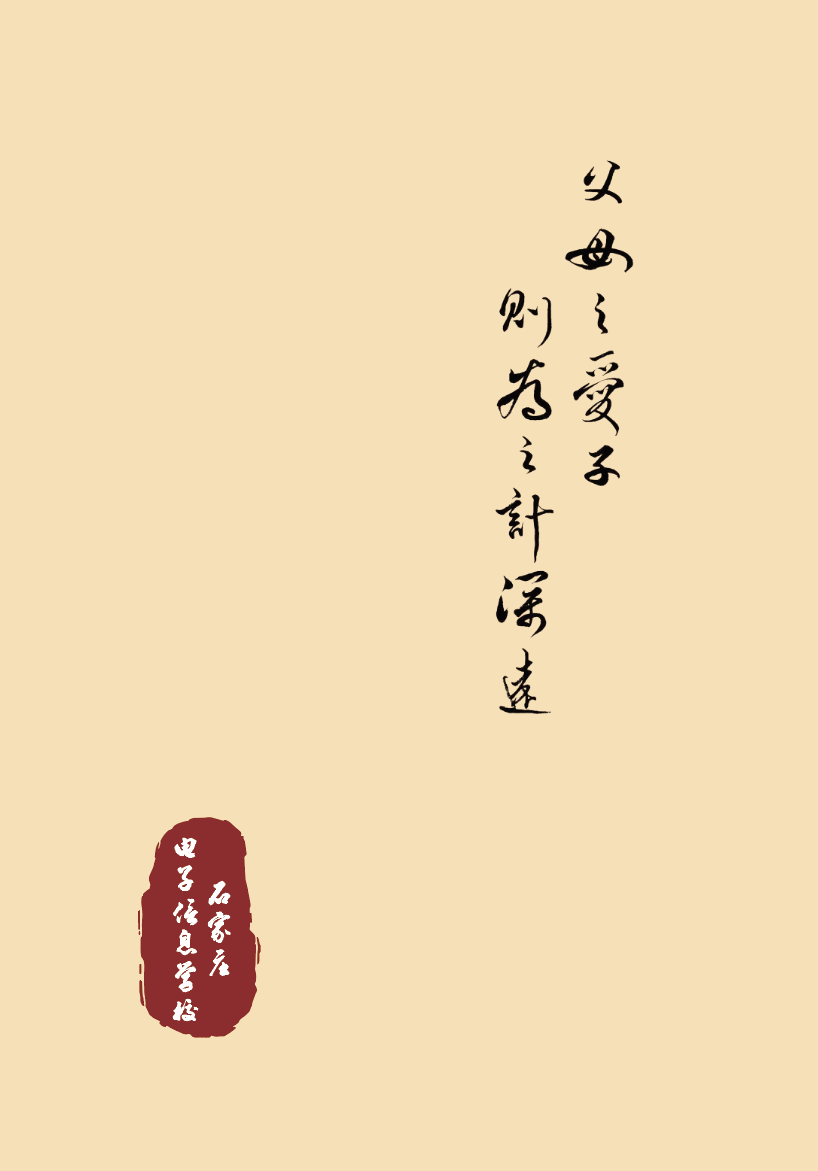 父母之愛子
則為之計深遠
石家庄
电子信息学校